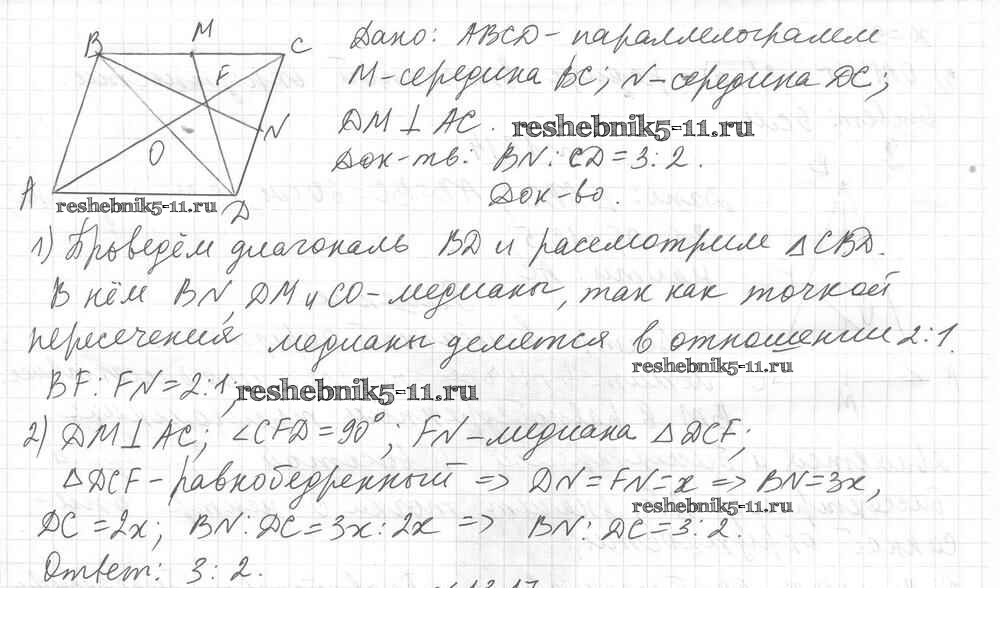 B M C
F
N
O
A D
reshebnik5-11.ru
Дано: ABCD - параллелограмм
M - середина BC; N - середина DC;
DM ⊥ AC. reshebnik5-11.ru
Док-ть. BN : CD = 3 : 2.
Док-во.
1) Проведём диагональ BD и рассмотрим △CBD.
В нём BN, DM и CO - медианы, так как точкой
пересечения медианы делятся в отношении 2:1.
reshebnik5-11.ru
BF : FN = 2:1; reshebnik5-11.ru
2) DM ⊥ AC; ∠CFD = 90°; FN - медиана △DCF;
△DCF - равнобедренный => DN = FN = x => BN = 3x,
reshebnik5-11.ru
DC = 2x; BN : DC = 3x : 2x => BN : DC = 3 : 2.
Ответ: 3 : 2.